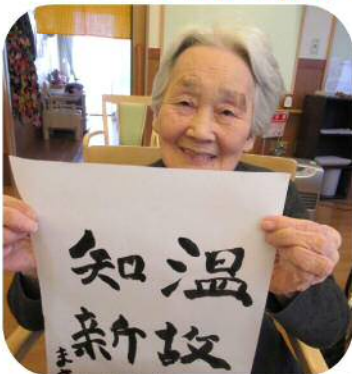 温故
知新
ま